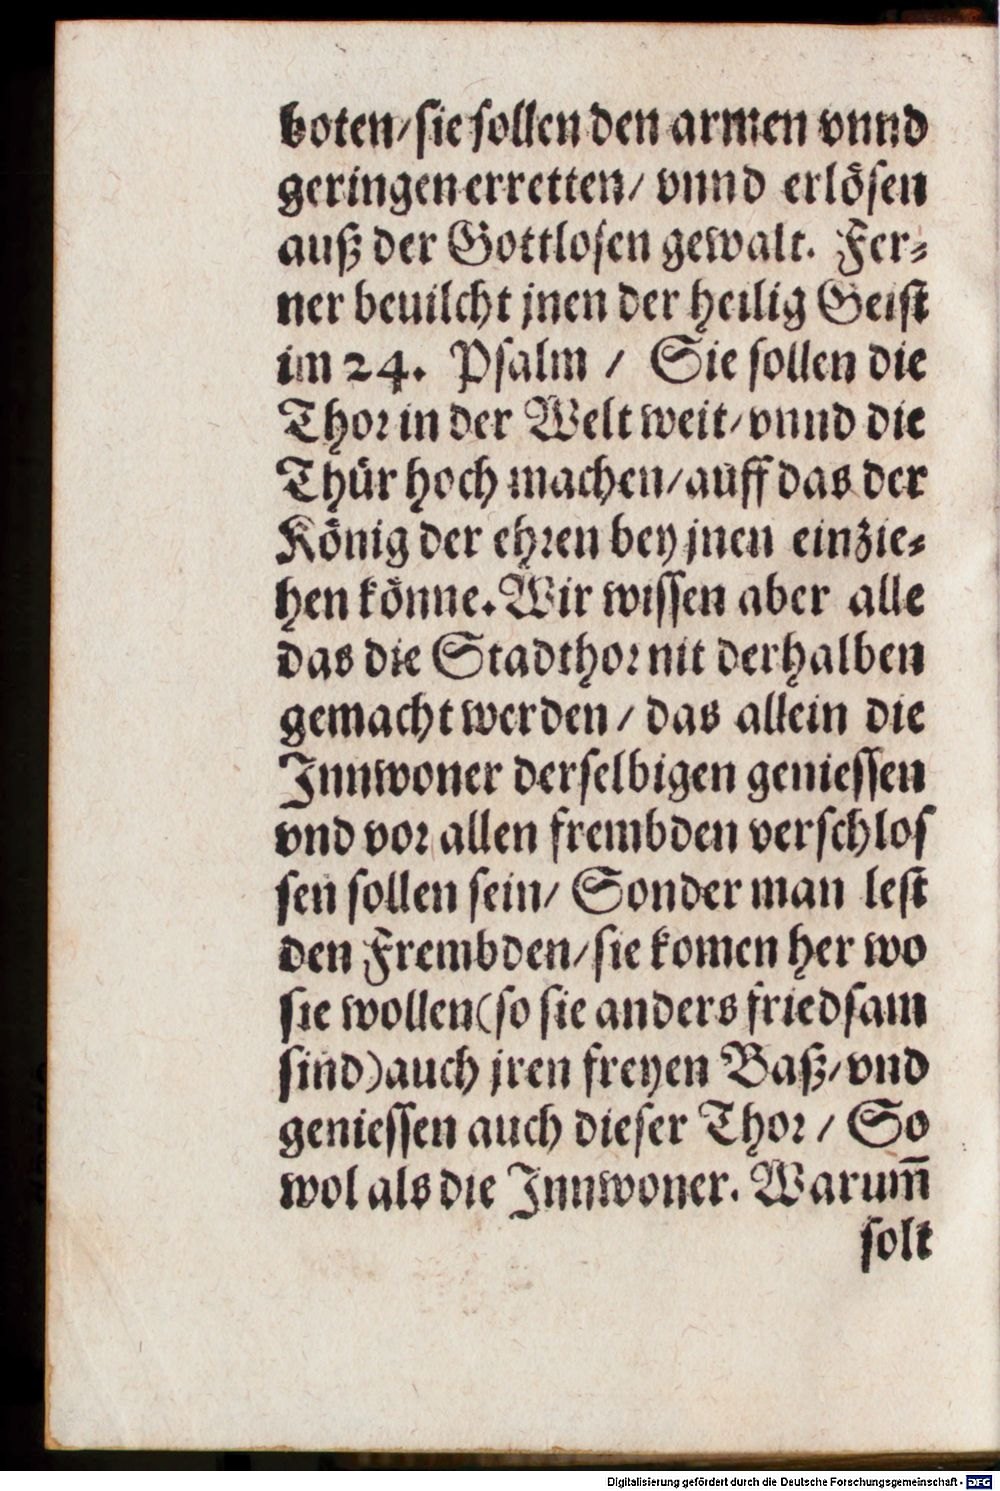 boten/ sie sollen den armen vnnd
geringen erretten/ vnnd erlösen
auß der Gottlosen gewalt. Fer⸗
ner beuilcht jnen der heilig Geist
im 24. Psalm / Sie sollen die
Thor in der Welt weit/ vnnd die
Thür hoch machen/ auff das der
König der ehren bey jnen einzie⸗
hen könne. Wir wissen aber alle
das die Stadthor nit derhalben
gemacht werden / das allein die
Innwoner derselbigen geniessen
vnd vor allen frembden verschlos
sen sollen sein/ Sonder man lest
den Frembden/ sie komen her wo
sie wollen (so sie anders friedsam
sind) auch jren freyen Baß/ vnd
geniessen auch dieser Thor / So
wol als die Innwoner. Warum̃
solt
Digitalisierung gefördert durch die Deutsche Forschungsgemeinschaft - DFG